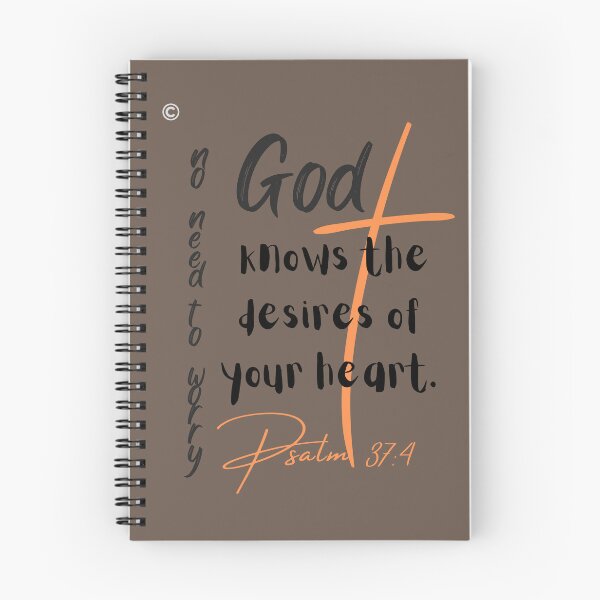 ©
no need to worry
God
knows the
desires of
your heart.
Psalm 37:4